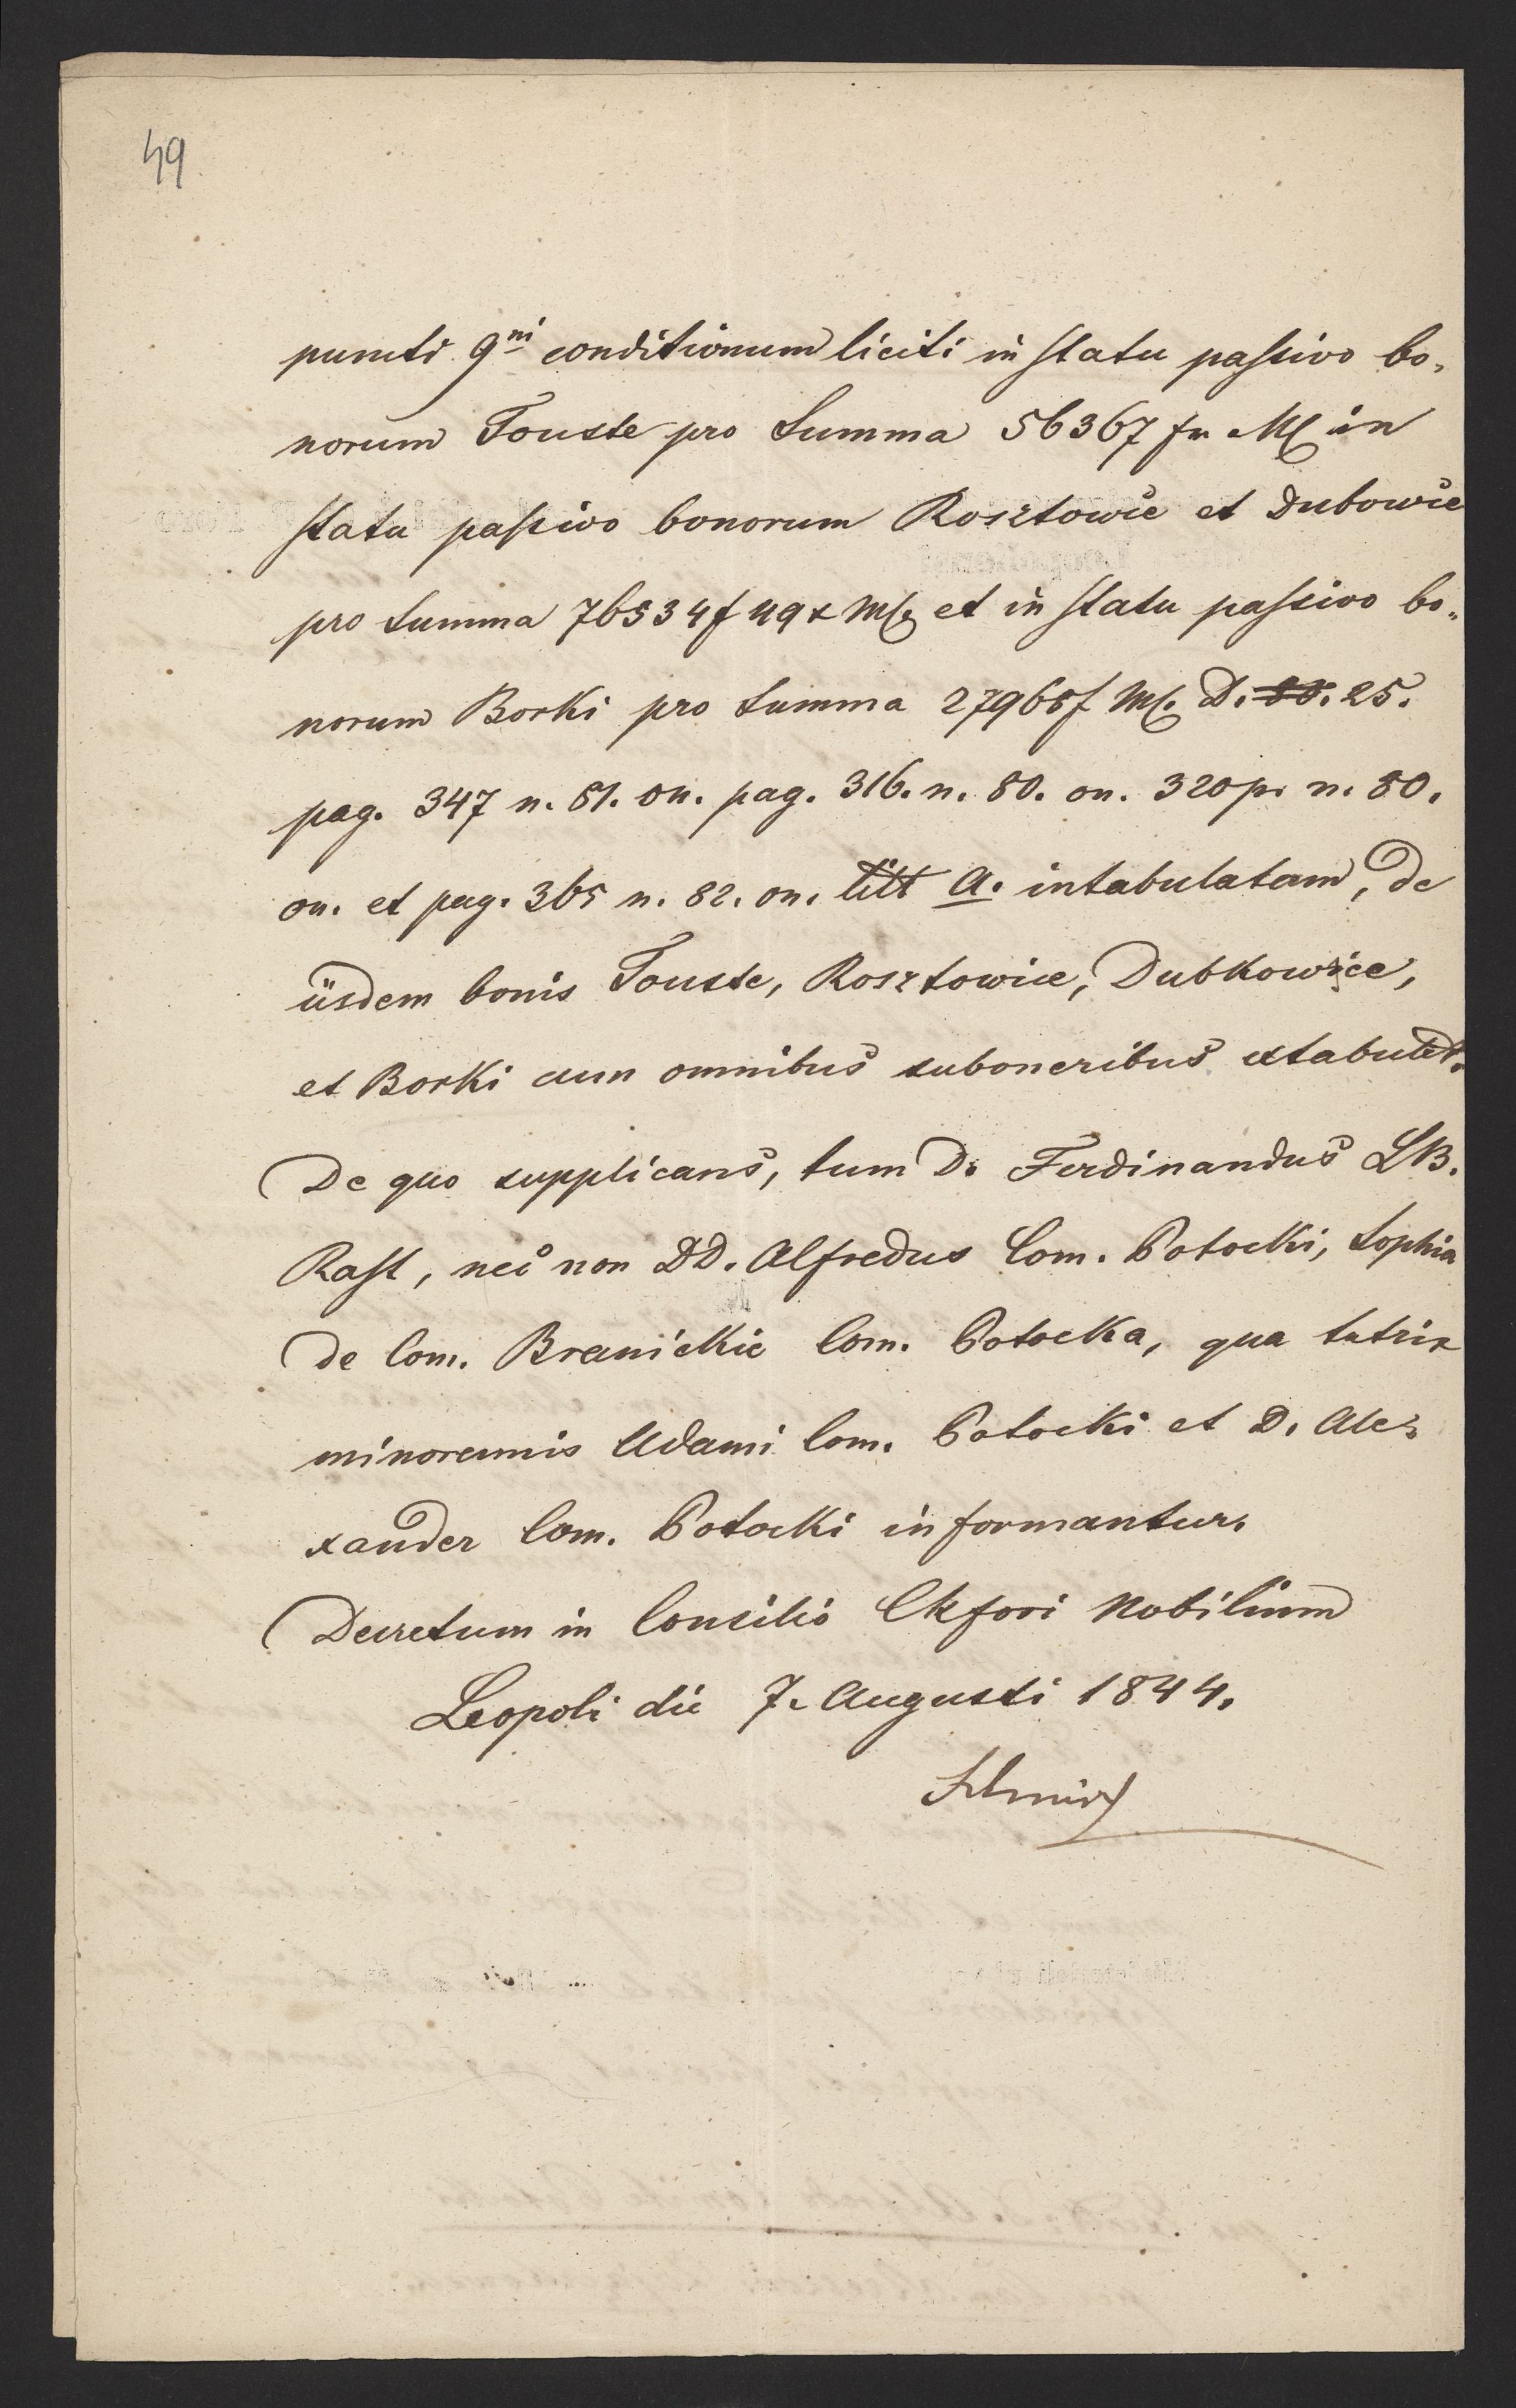 49
puncti 9ni conditionum liciti in statu passivo bo-
norum Touste pro Summa 56367 fr M in
statu passivo bonorum Rosztowie et Dubowie
pro Summa 76534 f 49 x M et in statu passivo bo-
norum Borki pro Summa 27965 f M. D. 25.
pag. 347 n. 81. on. pag. 316. n. 80. on. 320 p. n. 80.
on. et pag. 365 n. 82. on. litt A. intabulatam, de
iisdem bonis Touste, Rosztowice, Dubkowice,
et Borki cum omnibus suboneribus extabulet.
De quo supplicans, tum D. Ferdinandus LB.
Rast, nec non DD. Alfredus Com. Potocki, Sophia
de Com. Branickie Com. Potocka, qua tutrix
minorennis Adami Com. Potocki et D. Ale-
xander Com. Potocki informantur.
Decretum in Consilio CR fori Nobilium
Leopoli die 7. Augusti 1844.